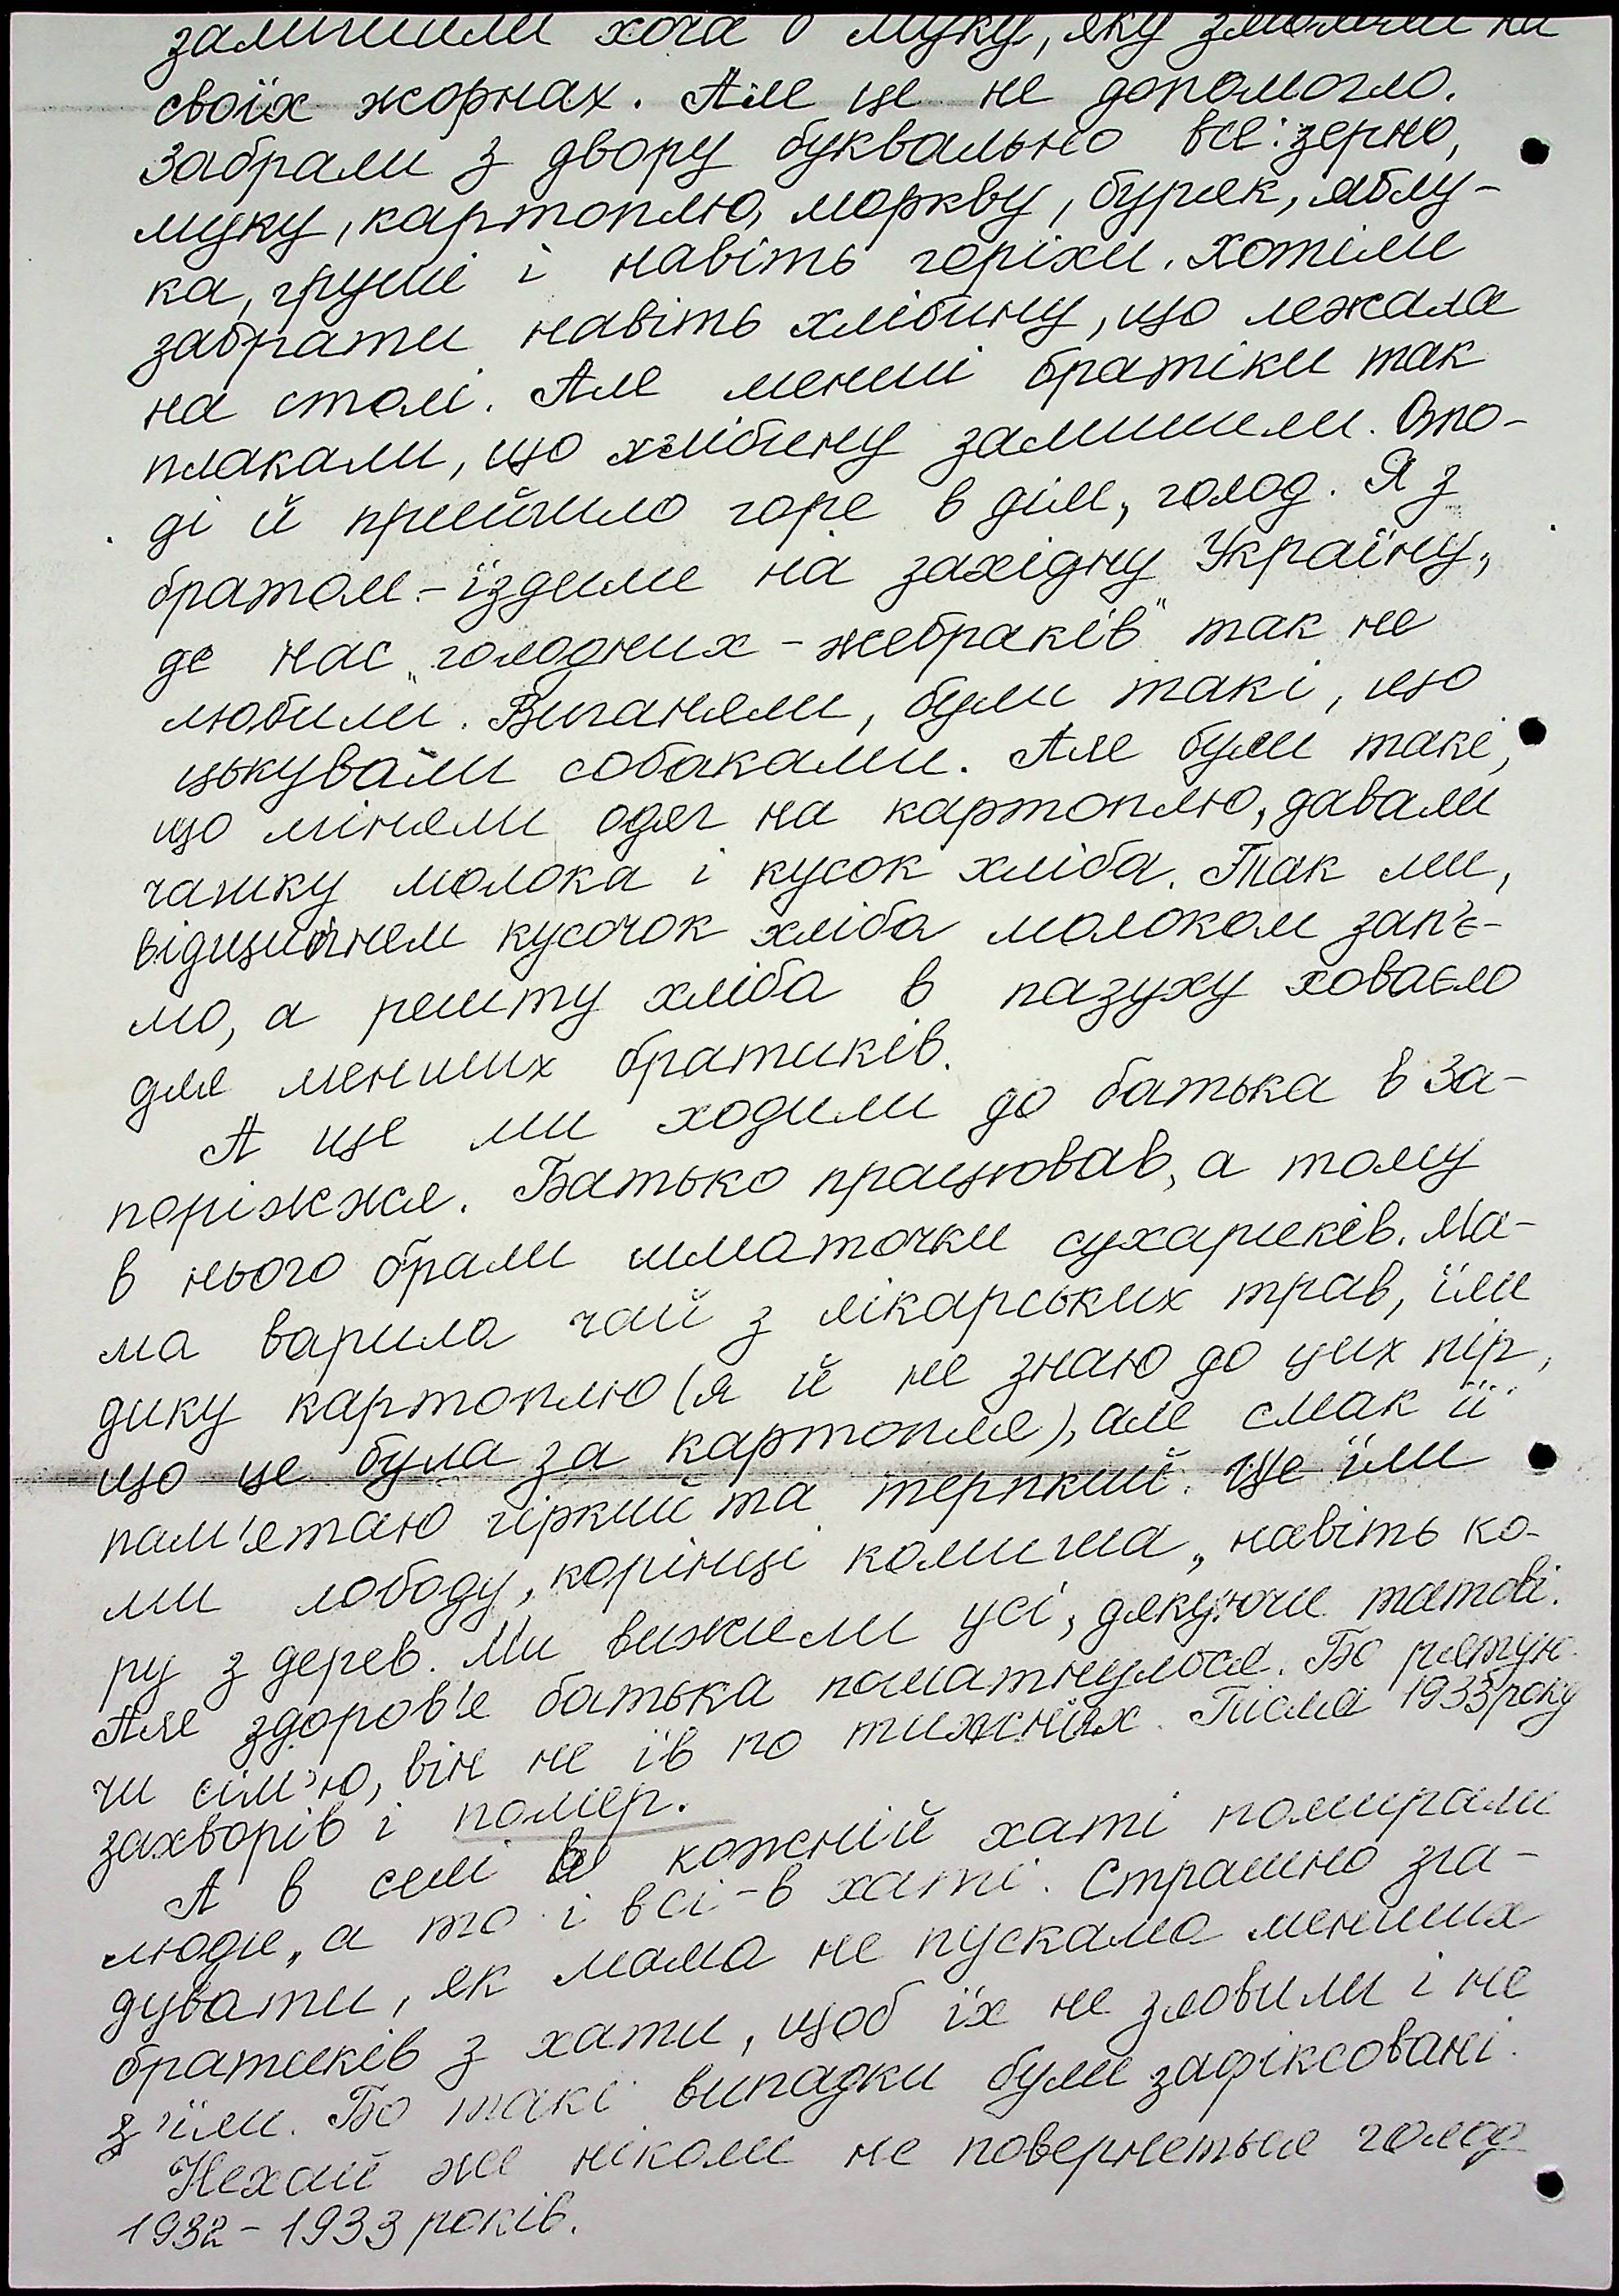 залишили хоча б муку, яку змололи на
своїх жорнах. Але це не допомогло.
Забрали з двору буквально все: зерно,
муку, картоплю, моркву, буряк, яблу-
ка, груші і навіть горіхи. Хотіли
забрати навіть хлібину, що лежала
на столі. Але менші братіки так
плакали, що хлібину залишили. Ото-
ді й прийшло горе в дім, голод. Я з
братом - їздили на західну Україну,
де нас „голодних - жебраків" так не
любили. Виганяли, були такі, що
цькували собаками. Але були такі,
що міняли одяг на картоплю, давали
чашку молока і кусок хліба. Так ми,
відщипнем кусочок хліба молоком зап'є-
мо, а решту хліба в пазуху ховаємо
для менших братиків.
А ще ми ходили до батька в За-
поріжжя. Батько працював, а тому
в нього брали шматочки сухариків. Ма-
ма варила чай з лікарських трав, їли
дику картоплю (я й не знаю до цих пір,
що це була за картопля), але смак її
пам'ятаю гіркий та терпкий. Ще їли
ми лободу, корінці комиша, навіть ко-
ру з дерев. Ми вижили усі, дякуючи татові.
Але здоров'я батька пошатнулося. Бо рятую-
чи сім'ю, він не їв по тижнях. Після 1933 року
захворів і помер.
А в селі в кожній хаті помирали
люди, а то і всі - в хаті. Страшно зга-
дувати, як мама не пускала менших
братиків з хати, щоб їх не зловили і не
з'їли. Бо такі випадки були зафіксовані.
Нехай же ніколи не повернеться голод
1932 - 1933 років.